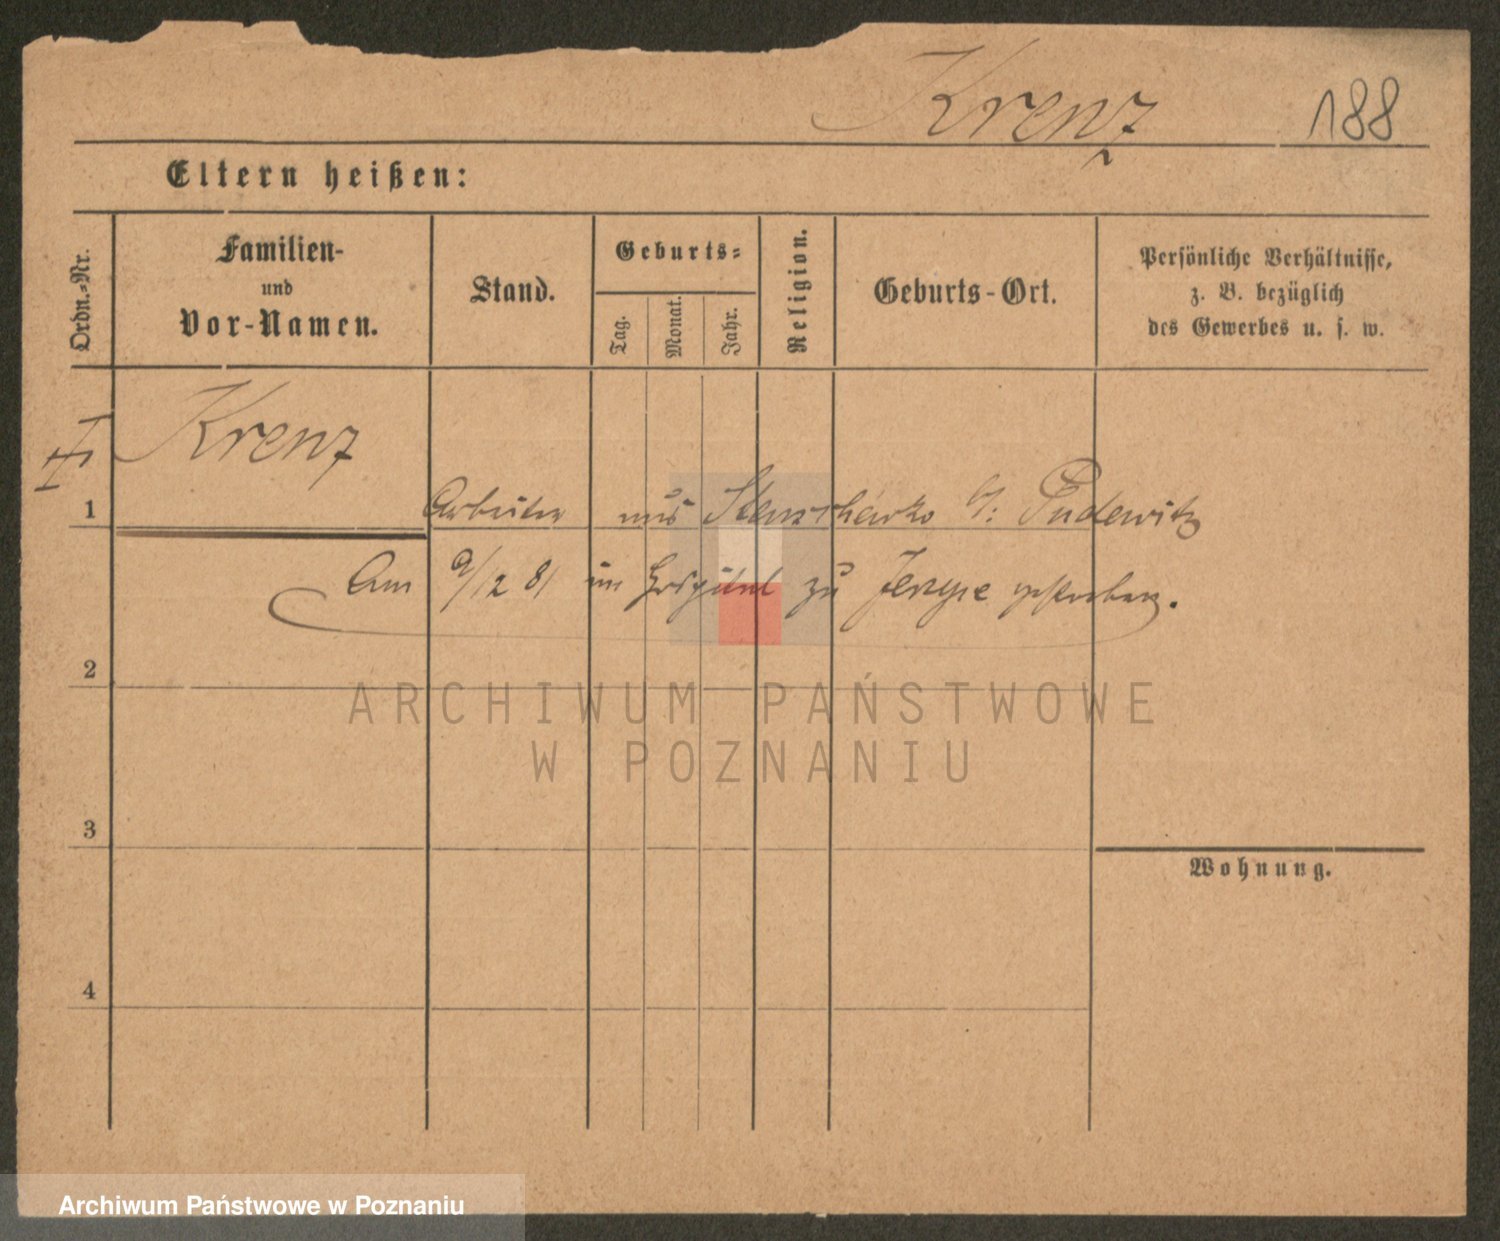 Krenz 188
Eltern heißen:
Ordn.-Nr.
Familien-
und
Vor-Namen.
Stand.
Geburts-
Tag.
Monat.
Jahr.
Religion.
Geburts-Ort.
Persönliche Verhältnisse,
z. B. bezüglich
des Gewerbes u. s. w.
Krenz
1 Arbeiter aus b/: Pudewitz
Am 9/12 81 im Hospital zu gestorben.
2
ARCHIWUM PAŃSTWOWE
W POZNANIU
3
Wohnung.
4
Archiwum Państwowe w Poznaniu